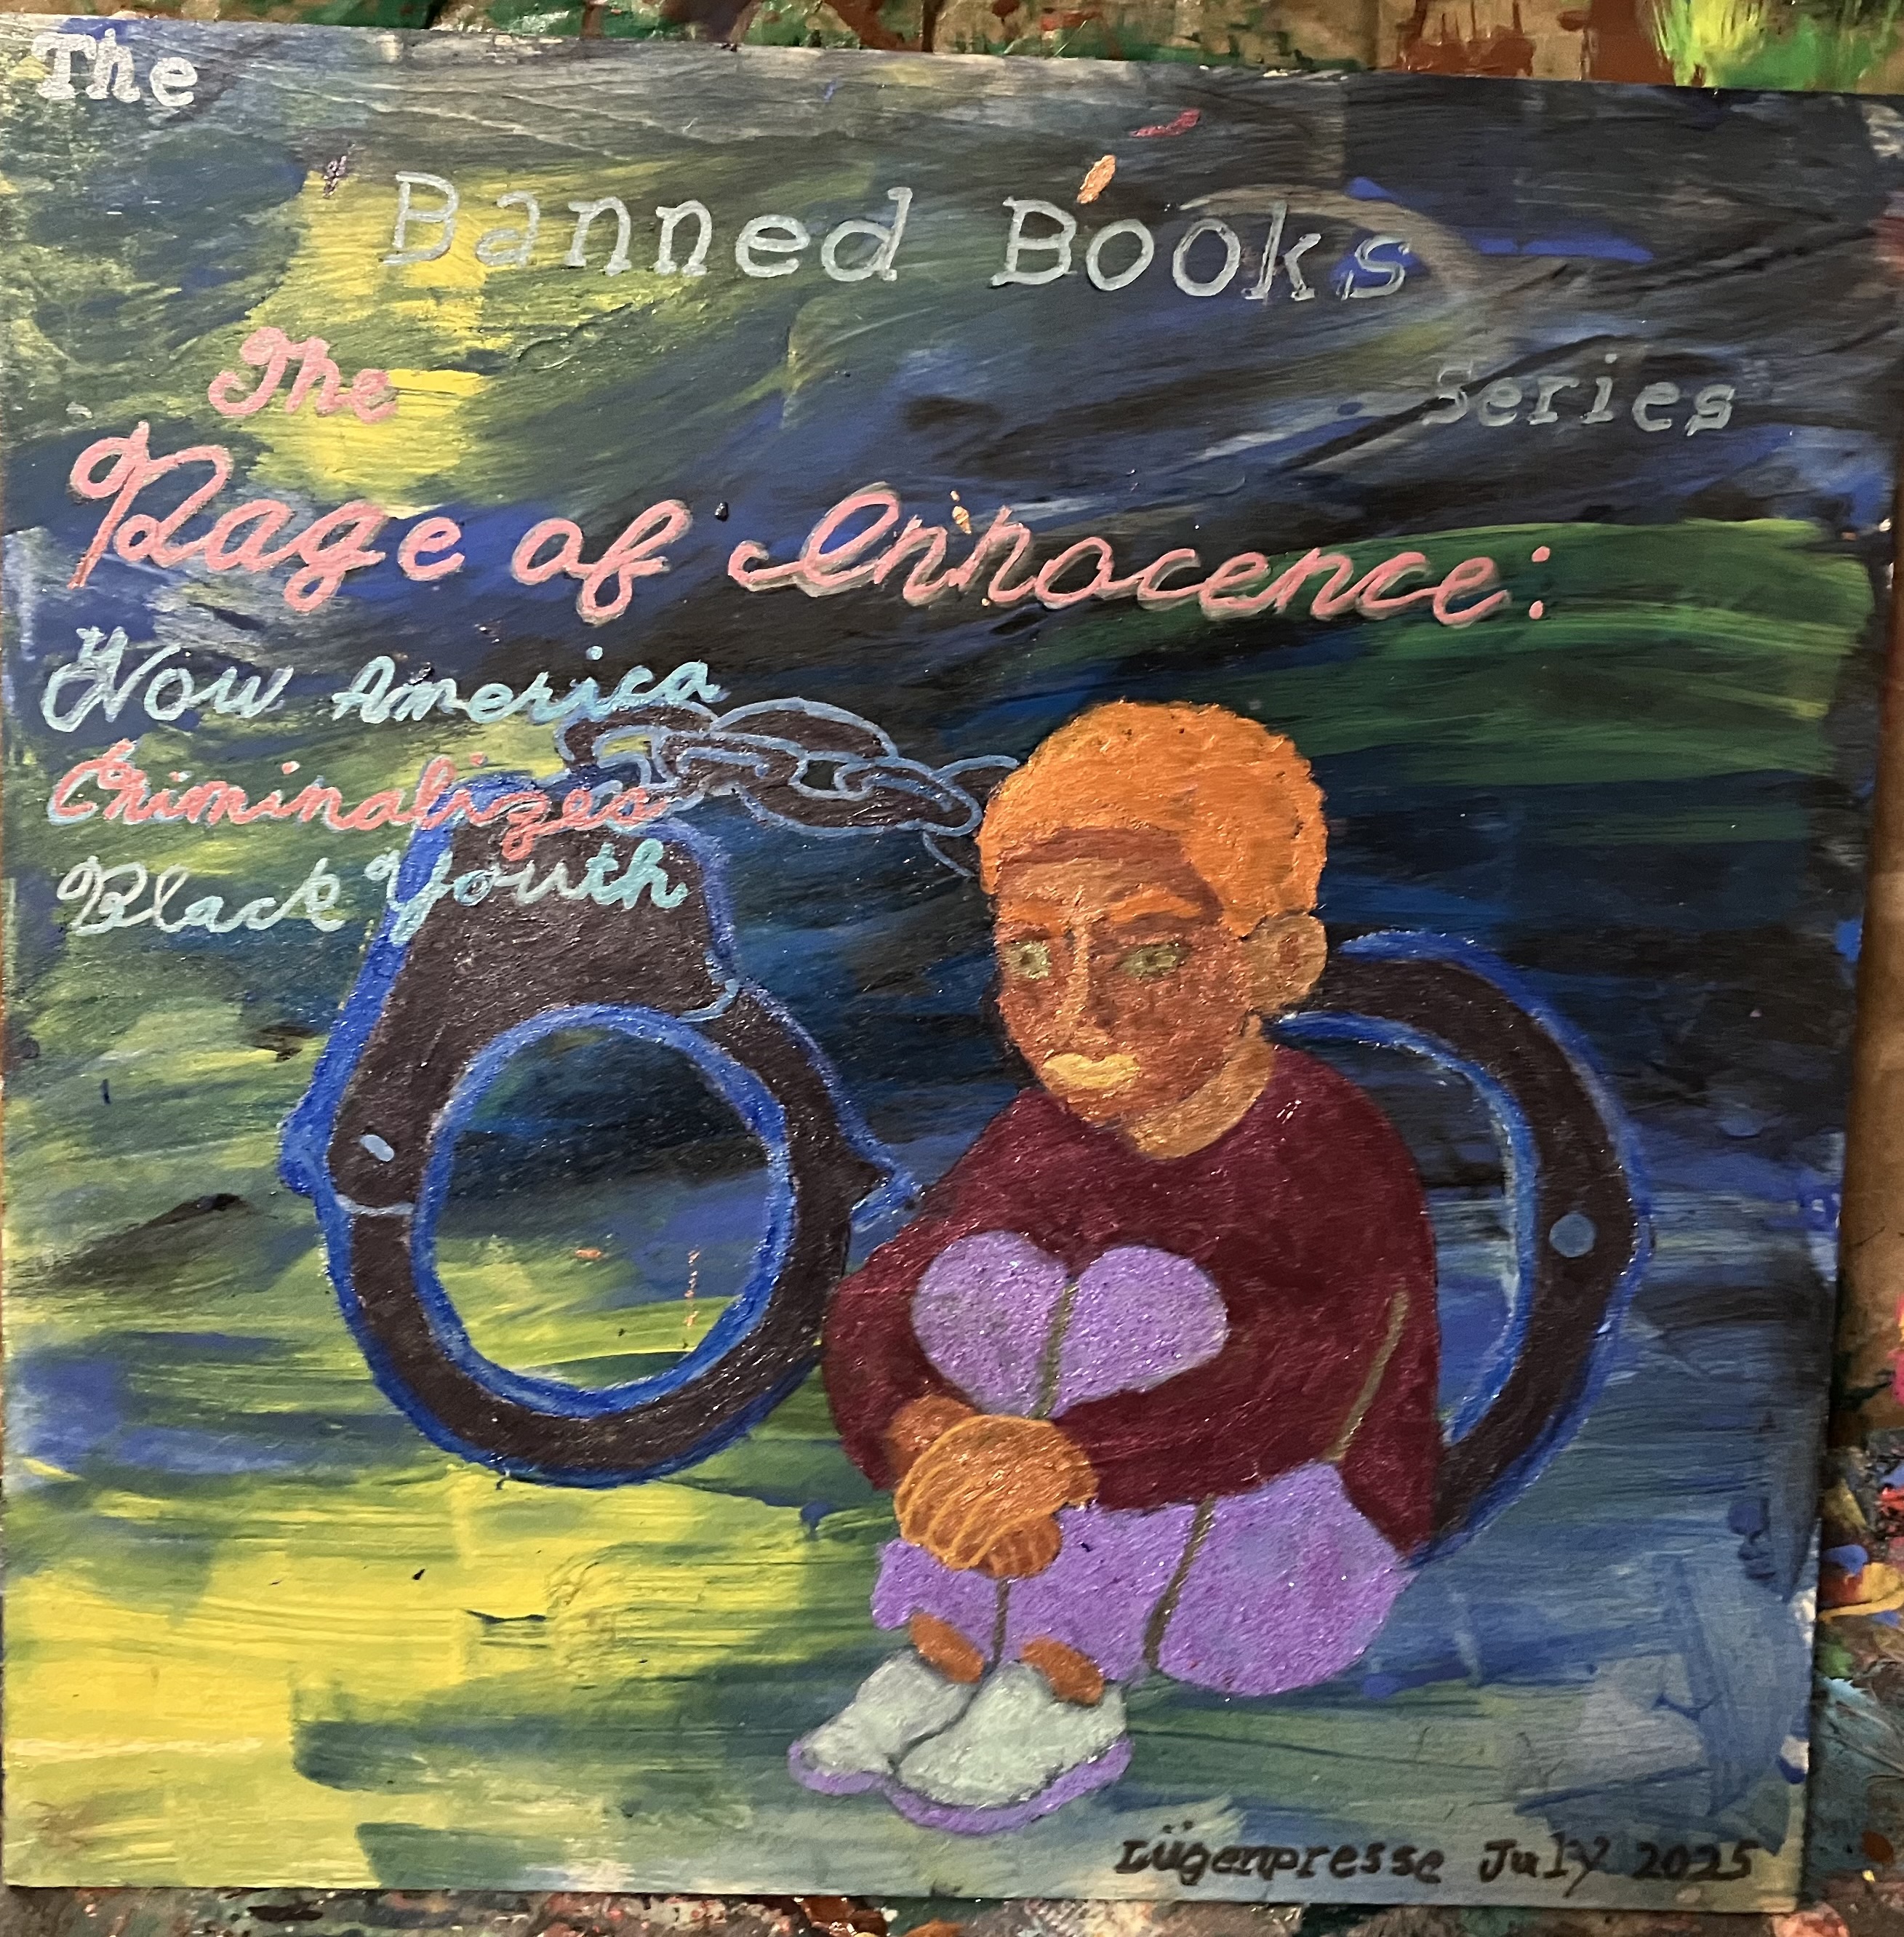 The
Banned Books
Series
The
Rage of Innocence:
How America
Criminalizes
Black Youth
Lügenpresse July 2025